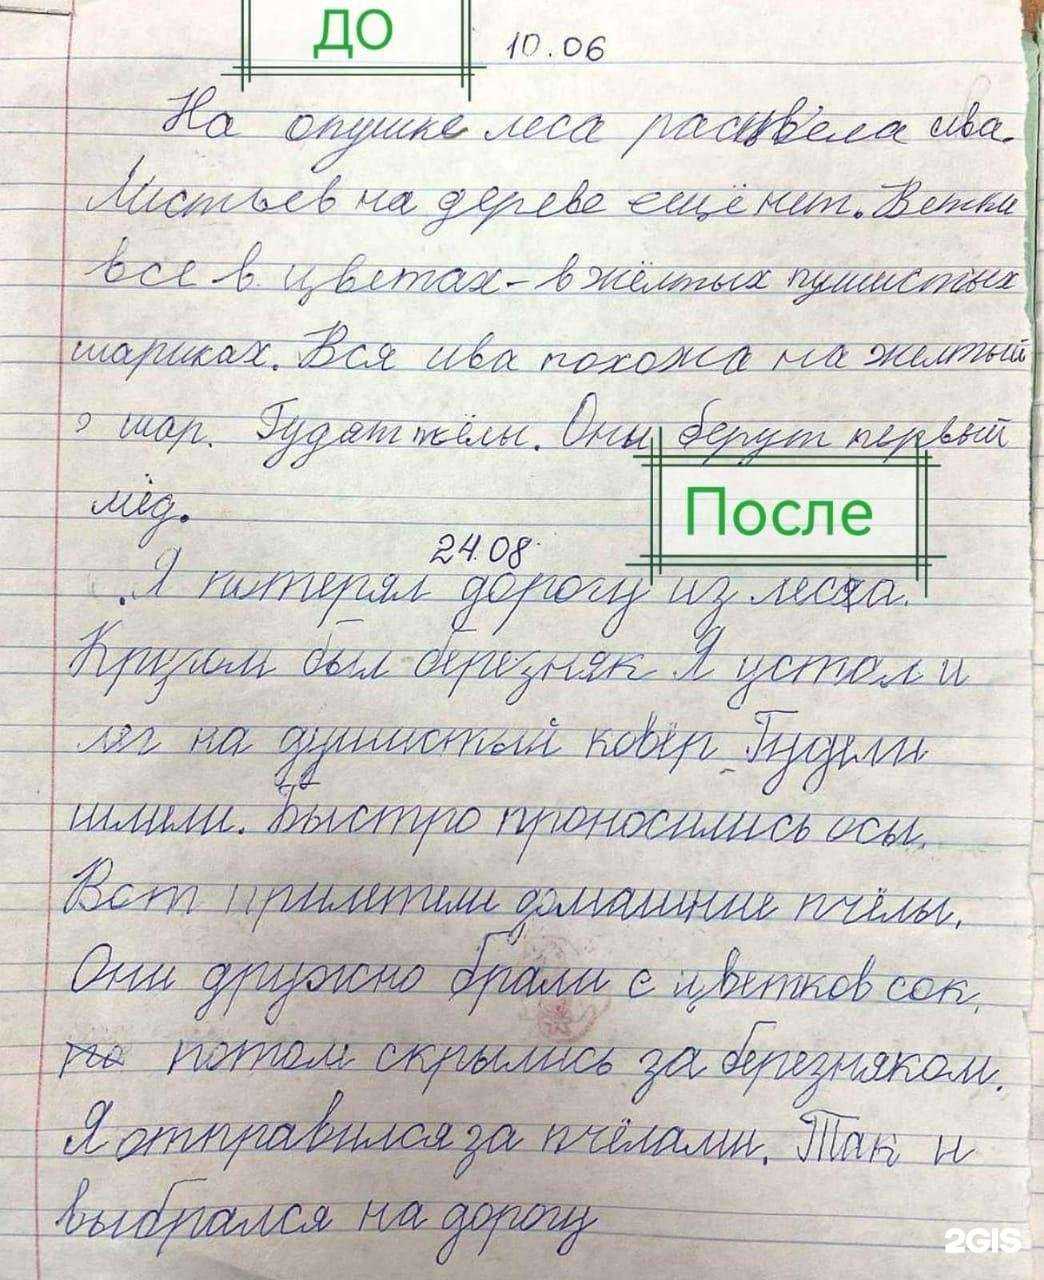 ДО
10.06
На опушке леса расцвела ива.
Листьев на дереве ещё нет. Ветки
все в цветах - в жёлтых пушистых
шариках. Вся ива похожа на желтый
шар. Гудят пчёлы. Они берут первый
мёд.
После
24.08.
Я потерял дорогу из леса.
Кругом был березняк Я устал и
лёг на душистый ковёр Гудели
шмели. Быстро проносились осы.
Вот прилетели домашние пчёлы.
Они дружно брали с цветков сок,
по потом скрылись за березняком.
Я отправился за пчёлами. Так и
выбрался на дорогу
2GIS